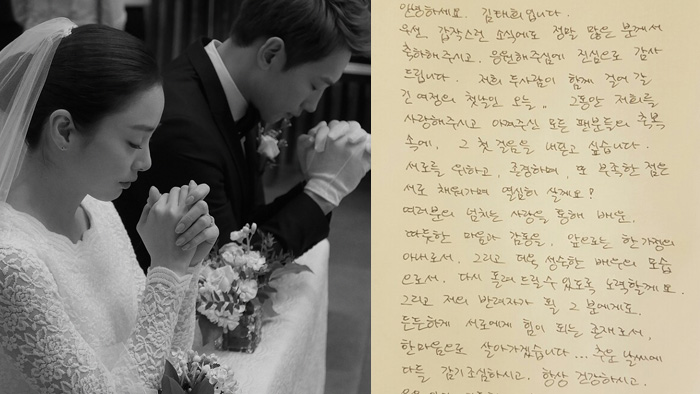 안녕하세요. 김태희입니다.
우선 갑작스런 소식에도 정말 많은 분께서
축하해주시고, 응원해주심에 진심으로 감사
드립니다. 저희 두사람이 함께 걸어 갈
긴 여정의 첫날인 오늘,, 그동안 저희를
사랑해주시고 아껴주신 모든 팬분들의 축복
속에, 그 첫 걸음을 내딛고 싶습니다.
서로를 위하고, 존경하며, 또 부족한 점은
서로 채워가며 열심히 살게요!
여러분의 넘치는 사랑을 통해 배운,
따듯한 마음과 감동을, 앞으로는 한 가정의
아내로서, 그리고 더욱 성숙한 배우의 모습
으로서, 다시 돌려 드릴 수 있도록 노력할게요.
그리고 저의 반려자가 될 그 분에게도,
든든하게 서로에게 힘이 되는 존재로서,
한마음으로 살아가겠습니다... 추운 날씨에
다들 감기조심하시고, 항상 건강하시고,